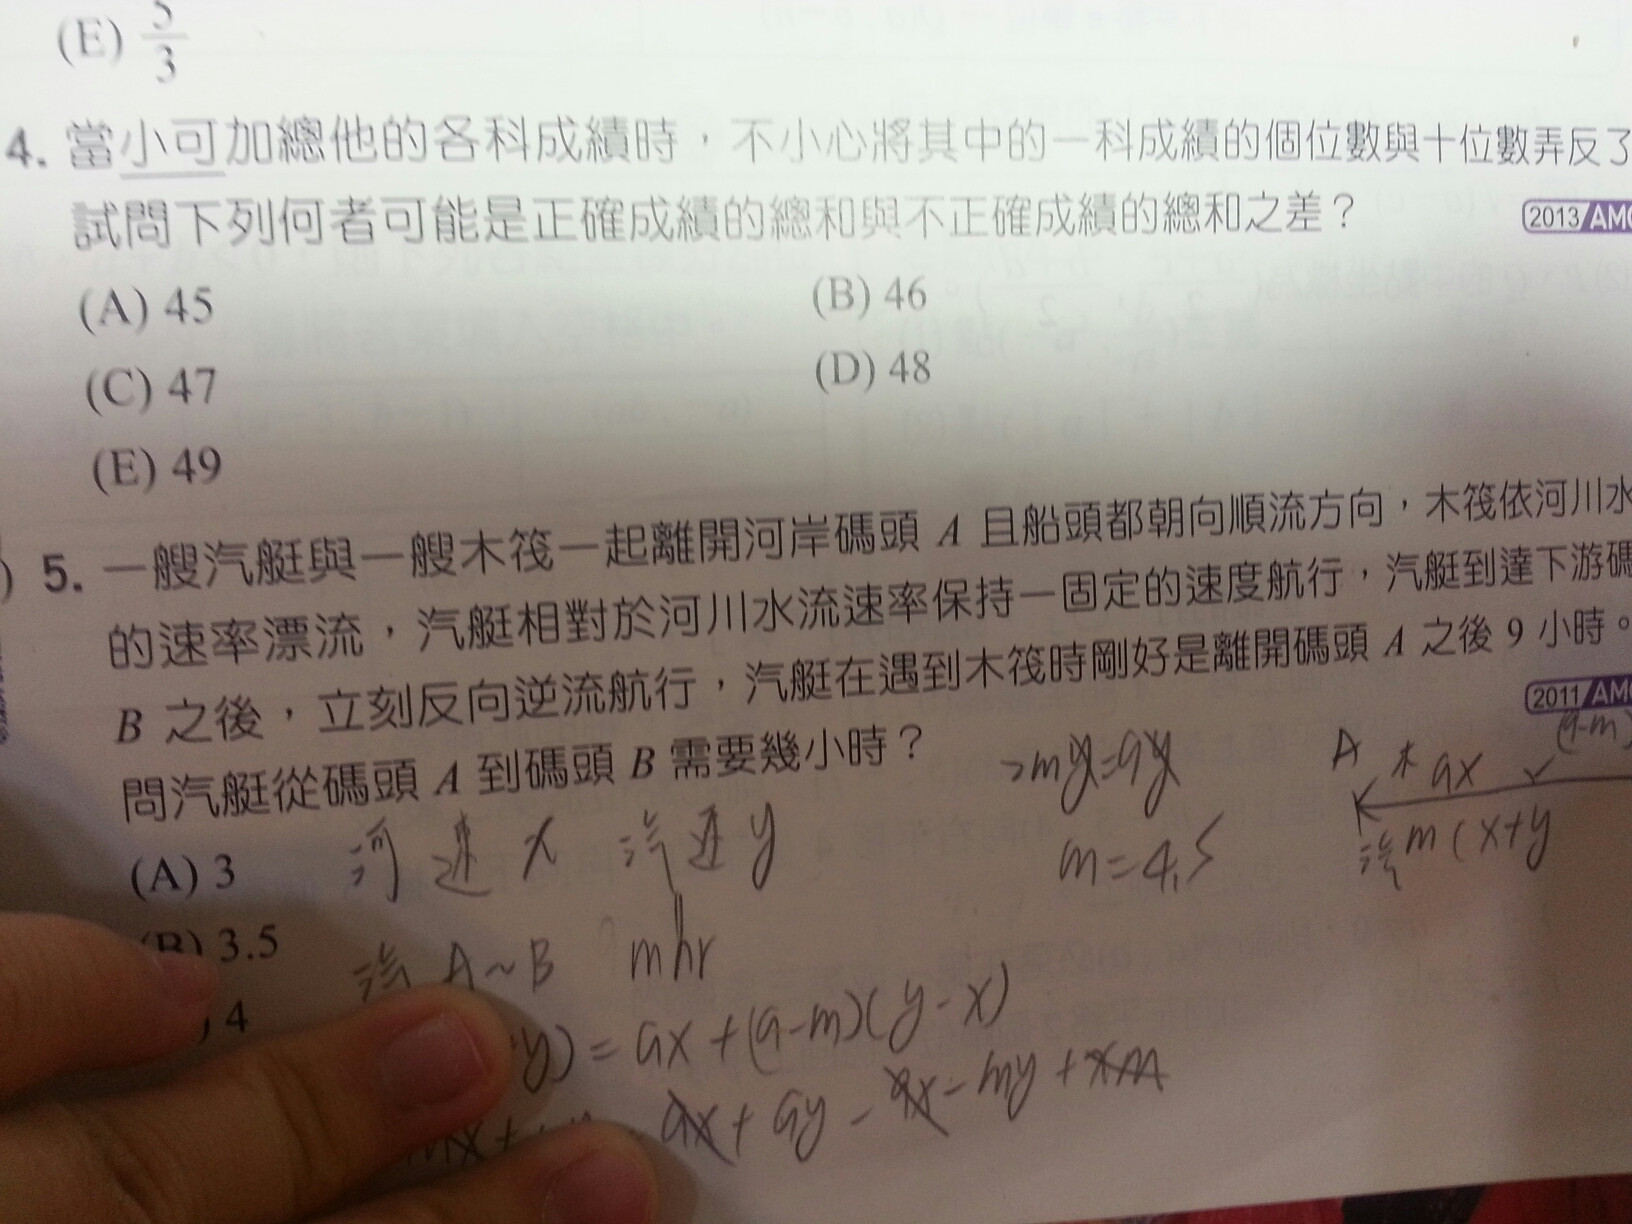 (E) 5/3
4. 當小可加總他的各科成績時，不小心將其中的一科成績的個位數與十位數弄反了
試問下列何者可能是正確成績的總和與不正確成績的總和之差？ 2013 AMC
(A) 45 (B) 46
(C) 47 (D) 48
(E) 49
5. 一艘汽艇與一艘木筏一起離開河岸碼頭 A 且船頭都朝向順流方向，木筏依河川水
的速率漂流，汽艇相對於河川水流速率保持一固定的速度航行，汽艇到達下游碼
B 之後，立刻反向逆流航行，汽艇在遇到木筏時剛好是離開碼頭 A 之後 9 小時。
2011 AMC
問汽艇從碼頭 A 到碼頭 B 需要幾小時？ 2my=9y A 木 9x (9-m)
(A) 3 河速 x 汽速 y m=4.5 汽 m(x+y
(B) 3.5 汽 A~B m hr
4 y)=9x+(9-m)(y-x)
mx+ 9x+9y-9x-my+xm